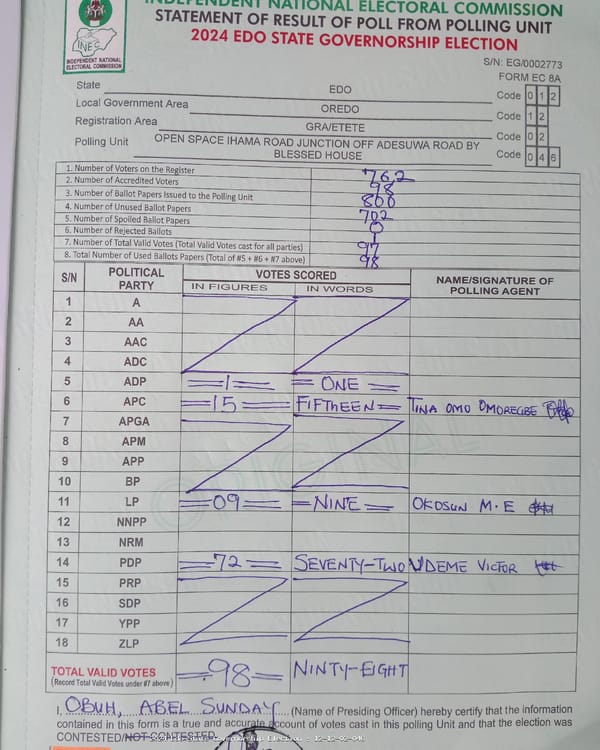 INDEPENDENT NATIONAL ELECTORAL COMMISSION
STATEMENT OF RESULT OF POLL FROM POLLING UNIT
2024 EDO STATE GOVERNORSHIP ELECTION
INEC
INDEPENDENT NATIONAL
ELECTORAL COMMISSION
S/N: EG/0002773
FORM EC 8A
State EDO Code 0 1 2
Local Government Area OREDO Code 1 2
Registration Area GRA/ETETE Code 0 2
Polling Unit OPEN SPACE IHAMA ROAD JUNCTION OFF ADESUWA ROAD BY
BLESSED HOUSE Code 0 4 6
1. Number of Voters on the Register 762
2. Number of Accredited Voters 98
3. Number of Ballot Papers Issued to the Polling Unit 800
4. Number of Unused Ballot Papers 702
5. Number of Spoiled Ballot Papers 0
6. Number of Rejected Ballots 1
7. Number of Total Valid Votes (Total Valid Votes cast for all parties) 97
8. Total Number of Used Ballots Papers (Total of #5 + #6 + #7 above) 98
S/N POLITICAL PARTY VOTES SCORED NAME/SIGNATURE OF POLLING AGENT
IN FIGURES IN WORDS
1 A
2 AA
3 AAC
4 ADC
5 ADP =1= =ONE=
6 APC =15= FIFTHEEN= TINA OMO OMOREGBE
7 APGA
8 APM
9 APP
10 BP
11 LP =09= =NINE= OKOSUN M.E
12 NNPP
13 NRM
14 PDP =72= SEVENTY-TWO UDEME VICTOR
15 PRP
16 SDP
17 YPP
18 ZLP
TOTAL VALID VOTES =98= NINTY-EIGHT
(Record Total Valid Votes under #7 above)
I, OBUH, ABEL SUNDAY (Name of Presiding Officer) hereby certify that the information
contained in this form is a true and accurate account of votes cast in this polling Unit and that the election was
CONTESTED/NOT CONTESTED